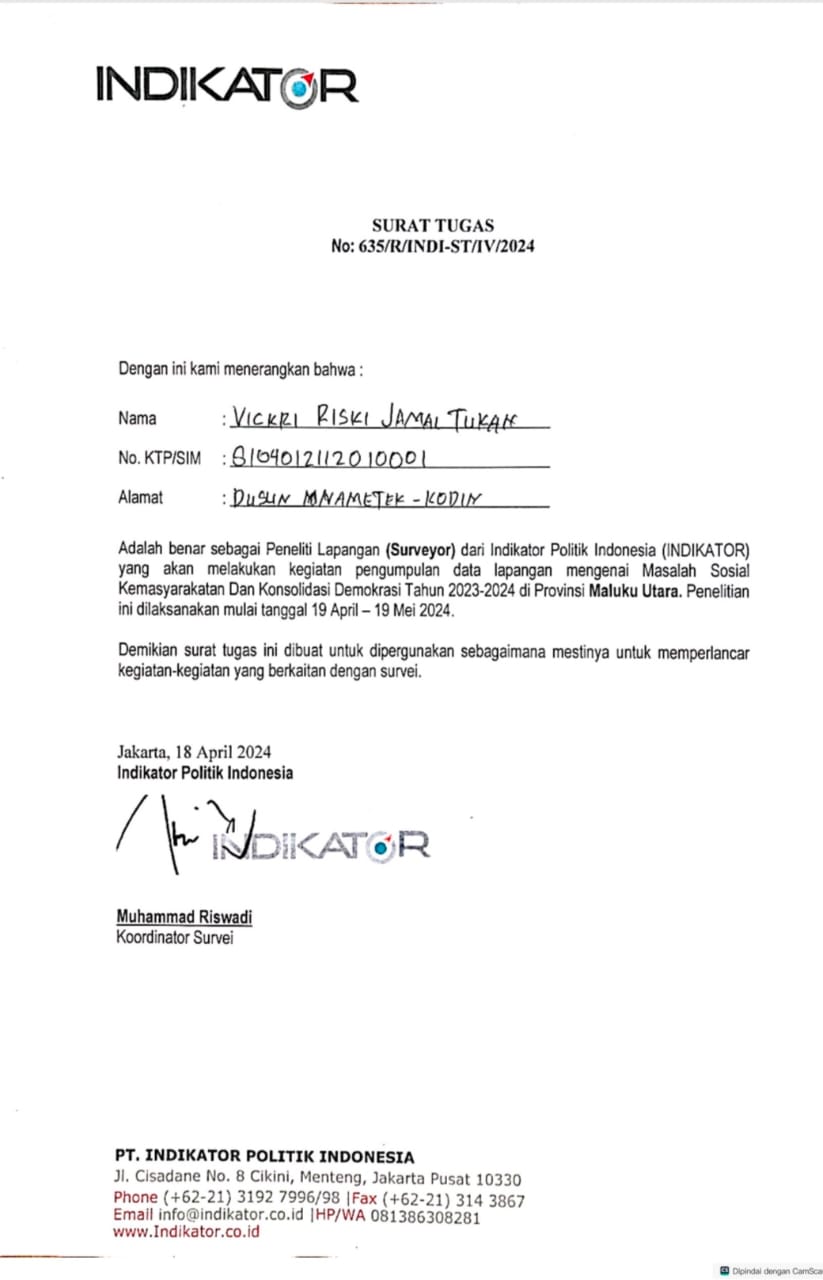 INDIKATOR
SURAT TUGAS
No: 635/R/INDI-ST/IV/2024
Dengan ini kami menerangkan bahwa :
Nama : VICKRI RISKI JAMAL TUKAN
No. KTP/SIM : 8104012112010001
Alamat : DUSUN MNAMETEK - KODIN
Adalah benar sebagai Peneliti Lapangan (Surveyor) dari Indikator Politik Indonesia (INDIKATOR)
yang akan melakukan kegiatan pengumpulan data lapangan mengenai Masalah Sosial
Kemasyarakatan Dan Konsolidasi Demokrasi Tahun 2023-2024 di Provinsi Maluku Utara. Penelitian
ini dilaksanakan mulai tanggal 19 April – 19 Mei 2024.
Demikian surat tugas ini dibuat untuk dipergunakan sebagaimana mestinya untuk memperlancar
kegiatan-kegiatan yang berkaitan dengan survei.
Jakarta, 18 April 2024
Indikator Politik Indonesia
INDIKATOR
Muhammad Riswadi
Koordinator Survei
PT. INDIKATOR POLITIK INDONESIA
Jl. Cisadane No. 8 Cikini, Menteng, Jakarta Pusat 10330
Phone (+62-21) 3192 7996/98 |Fax (+62-21) 314 3867
Email info@indikator.co.id |HP/WA 081386308281
www.Indikator.co.id
CS Dipindai dengan CamSca